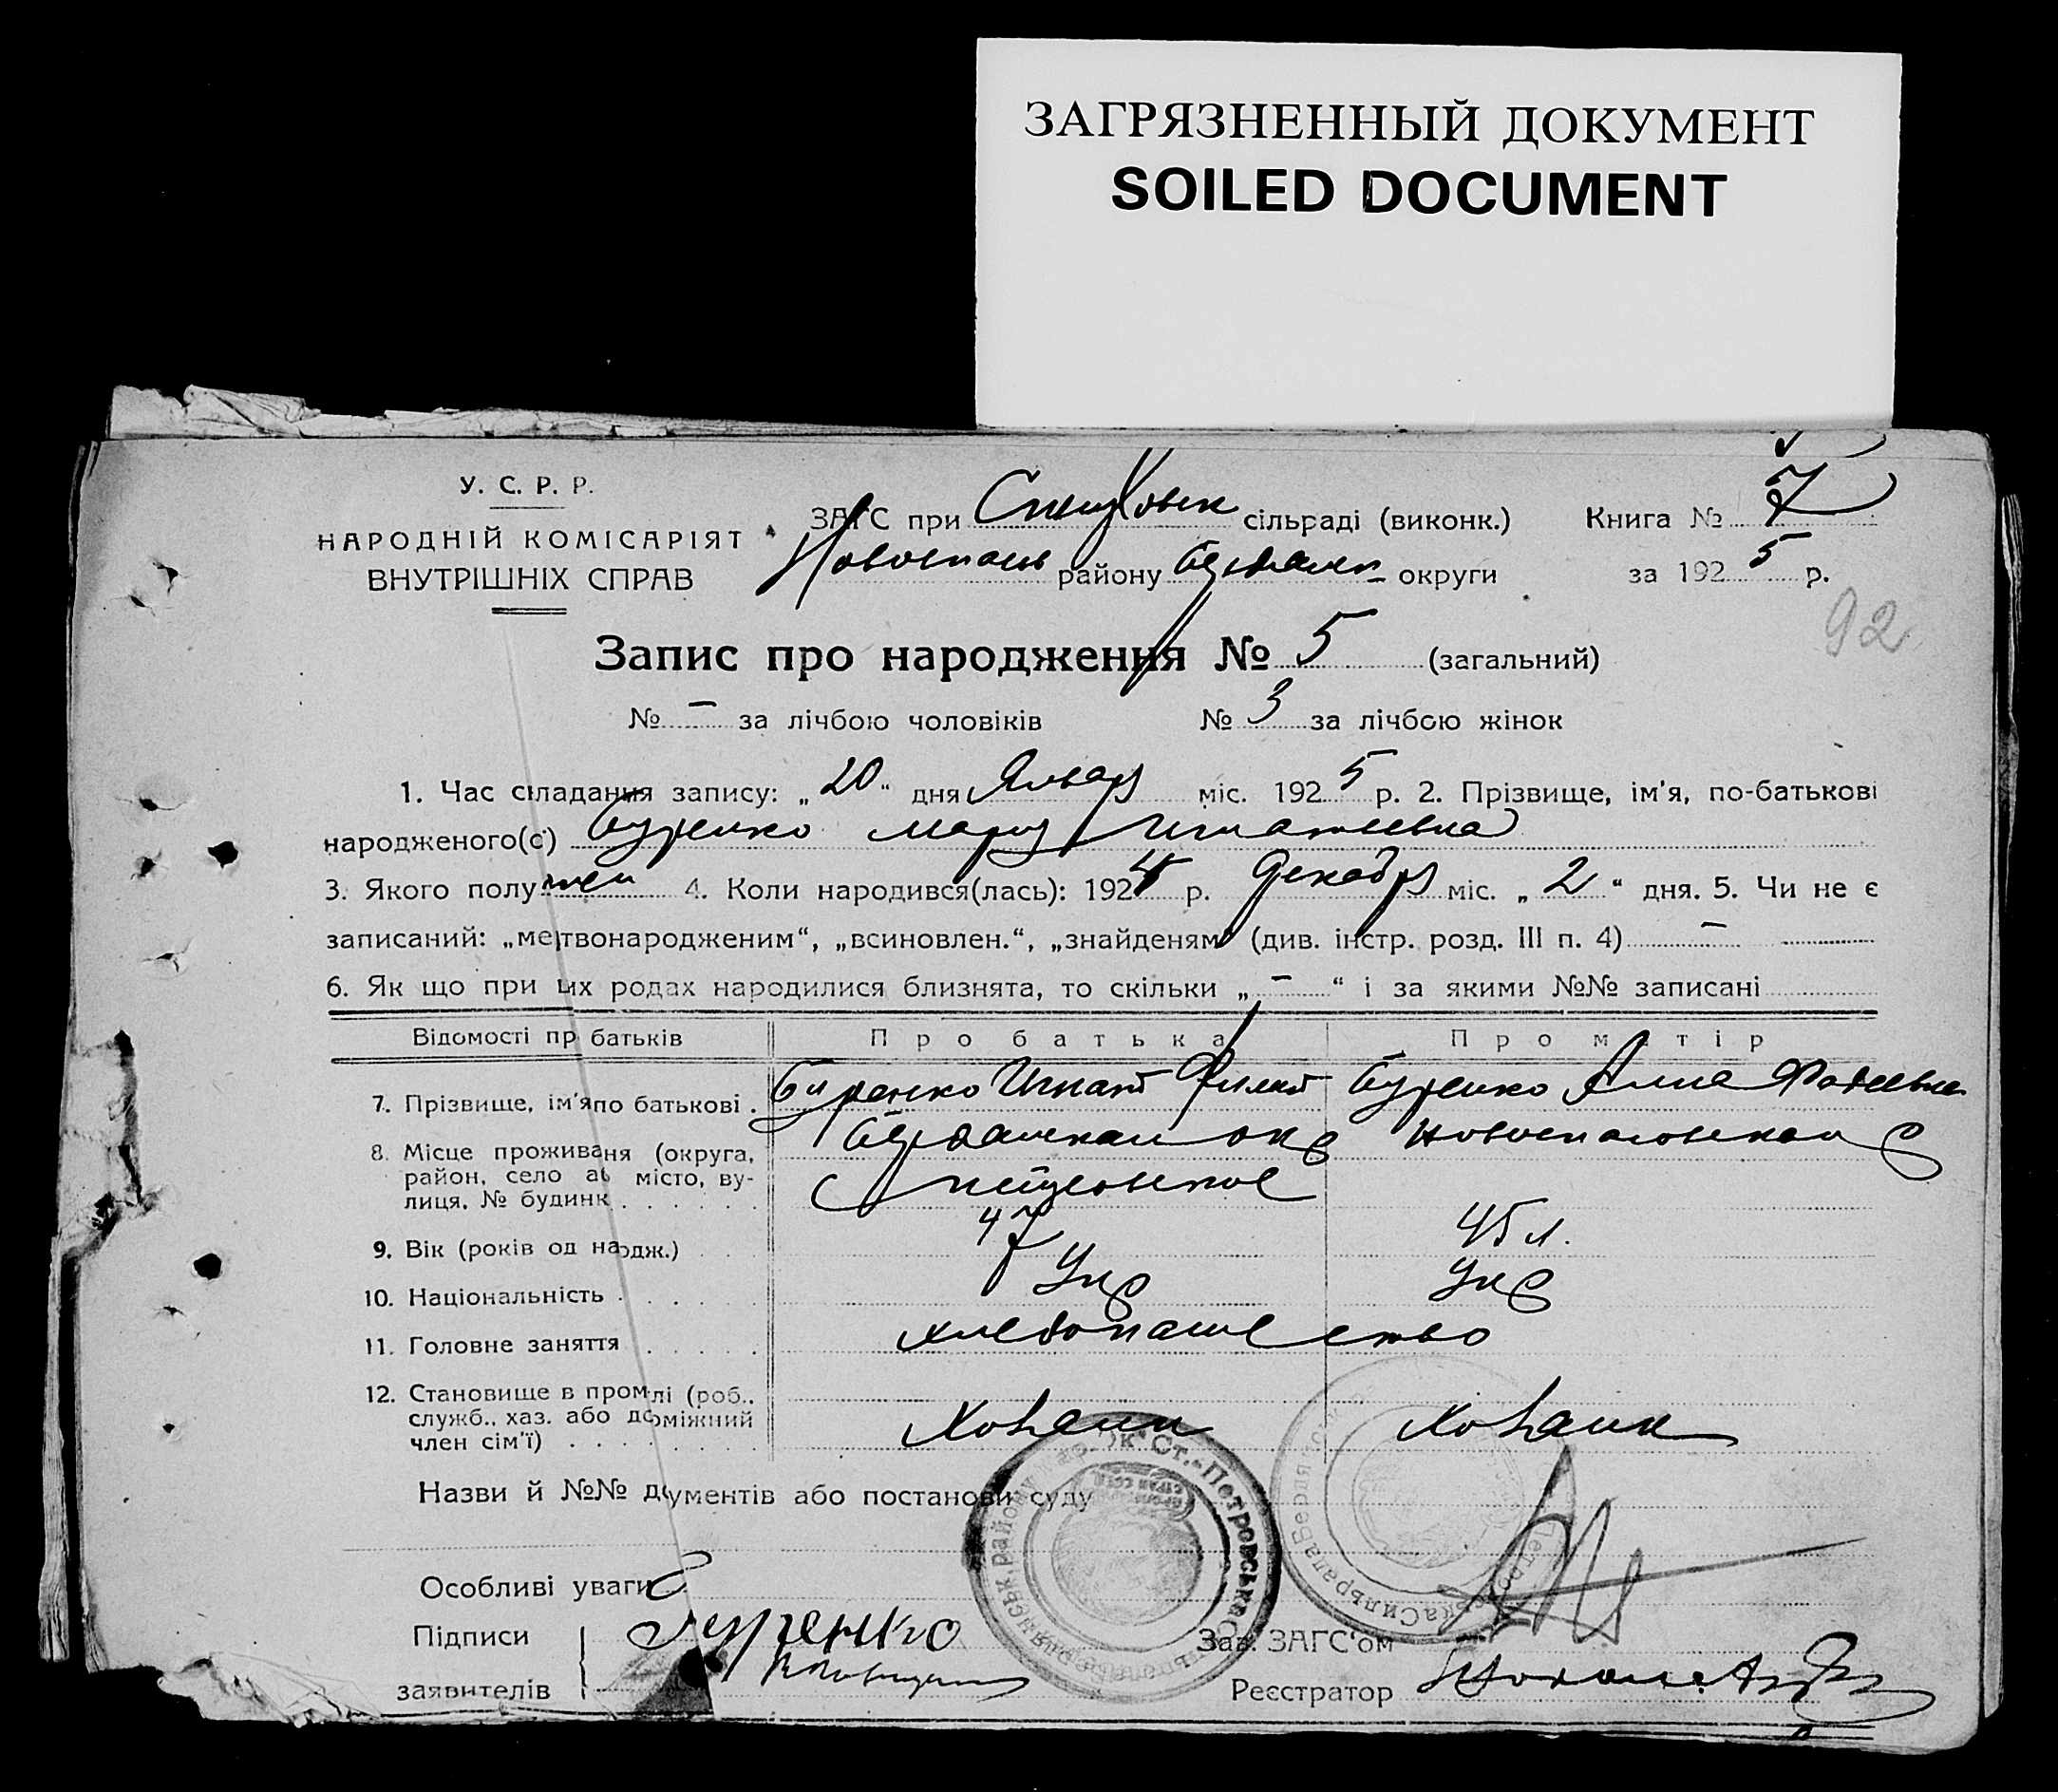 ЗАГРЯЗНЕННЫЙ ДОКУМЕНТ
SOILED DOCUMENT
У. С. Р. Р.
НАРОДНІЙ КОМІСАРІЯТ
ВНУТРІШНІХ СПРАВ
ЗАГС при сільраді (виконк.) Книга № 7
району округи за 1925 р.
92
Запис про народження № 5 (загальний)
№ – за лічбою чоловіків № 3 за лічбою жінок
1. Час складання запису: „20“ дня Январ міс. 1925 р. 2. Прізвище, ім'я, по-батькові
народженого(с) Буренко Мария Игнатьевна
3. Якого полу жен 4. Коли народився(лась): 1924 р. Декабря міс. „2“ дня. 5. Чи не є
записаний: „мертвонародженим“, „всиновлен.“, „знайденям“ (див. інстр. розд. III п. 4) –
6. Як що при цих родах народилися близнята, то скільки „–“ і за якими №№ записані
Відомості пр батьків Про батька Про матір
7. Прізвище, ім'я по батькові . Буренко Игнат Филип Буренко Анна Фадеевна
8. Місце проживаня (округа, район, село аб місто, вулиця, № будинк
9. Вік (років од народж.) 47 45 л.
10. Національність Укр Укр
11. Головне заняття хлебопашество
12. Становище в пром-лі (роб., служб., хаз. або доміжний член сім'ї) Хозяин Хозяик
Назви й №№ документів або постанови суду
Особливі уваги
Підписи Буренко Зав. ЗАГС'ом
заявителів Реєстратор